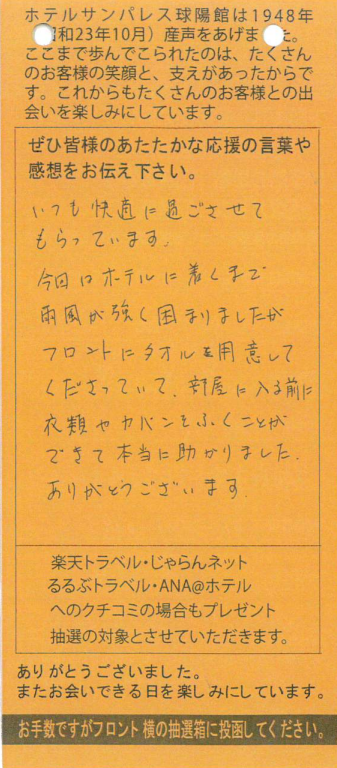 ホテルサンパレス球陽館は1948年
和23年10月）産声をあげま　た。
ここまで歩んでこられたのは、たくさん
のお客様の笑顔と、支えがあったからで
す。これからもたくさんのお客様との出
会いを楽しみにしています。
ぜひ皆様のあたたかな応援の言葉や
感想をお伝え下さい。
いつも快適に過ごさせて
もらっています。
今回はホテルに着くまで
雨風が強く困りましたが
フロントにタオルを用意して
くださっていて、部屋に入る前に
衣類やカバンをふくことが
できて本当に助かりました。
ありがとうございます。
楽天トラベル・じゃらんネット
るるぶトラベル・ANA@ホテル
へのクチコミの場合もプレゼント
抽選の対象とさせていただきます。
ありがとうございました。
またお会いできる日を楽しみにしています。
お手数ですがフロント横の抽選箱に投函してください。